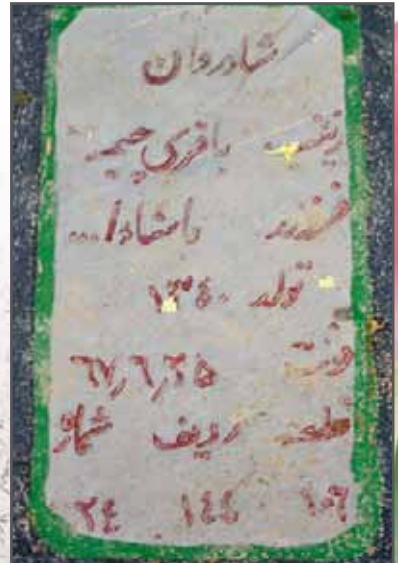 شادروان
زینب باقری چیمه
فرزند ماشاءا...
تولد ۱۳۴۰
فوت ۶۷٫۶٫۲۵
قطعه ردیف شماره
۱۰۶ ۱۴۴ ۲۴